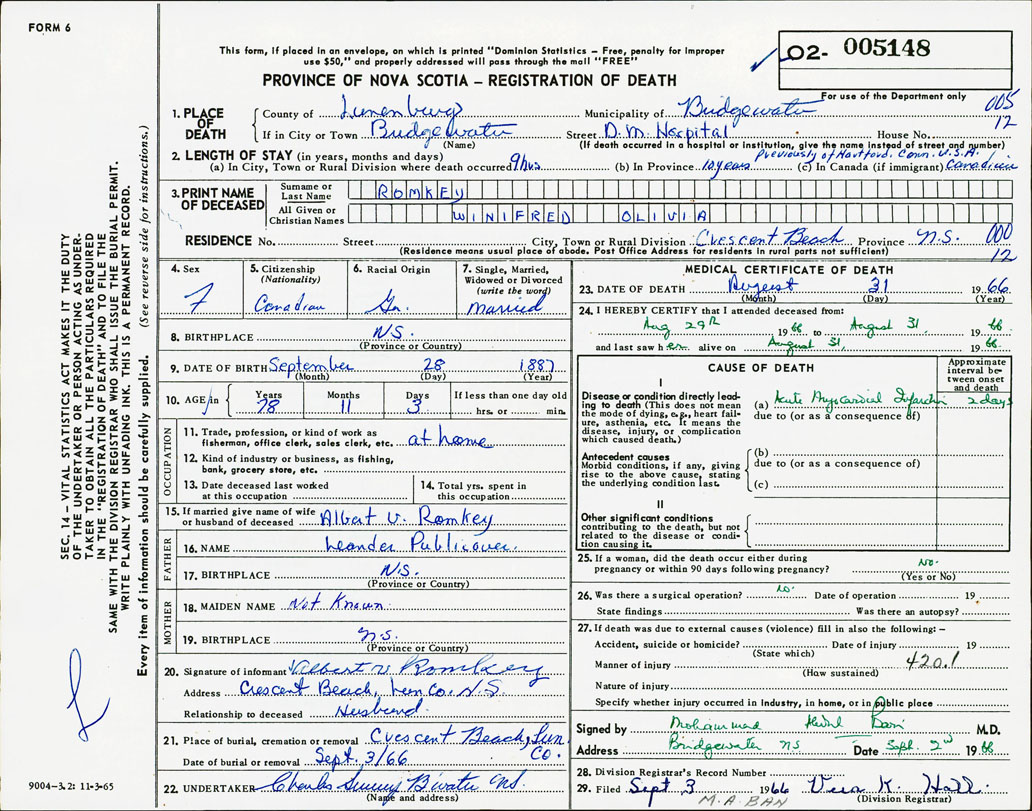 FORM 6
This form, if placed in an envelope, on which is printed "Dominion Statistics – Free, penalty for improper
use $50," and properly addressed will pass through the mail "FREE"
O2- 005148
PROVINCE OF NOVA SCOTIA – REGISTRATION OF DEATH
For use of the Department only
005
12
1. PLACE OF DEATH
County of Lunenburg Municipality of Bridgewater
If in City or Town Bridgewater Street D.M. Hospital House No.
(Name) (If death occurred in a hospital or institution, give the name instead of street and number)
2. LENGTH OF STAY (in years, months and days) Previously of Hartford, Conn. U.S.A.
(a) In City, Town or Rural Division where death occurred 9 hrs (b) In Province 10 years (c) In Canada (if immigrant) Canadian
3. PRINT NAME OF DECEASED
Surname or Last Name ROMKEY
All Given or Christian Names WINIFRED OLIVIA
RESIDENCE No. Street City, Town or Rural Division Crescent Beach Province N.S. 000
(Residence means usual place of abode. Post Office Address for residents in rural parts not sufficient) 12
4. Sex F
5. Citizenship (Nationality) Canadian
6. Racial Origin Gr.
7. Single, Married, Widowed or Divorced (write the word) Married
8. BIRTHPLACE N.S.
(Province or Country)
9. DATE OF BIRTH September 28 1887
(Month) (Day) (Year)
10. AGE in Years Months Days If less than one day old
78 11 3 hrs. or min.
OCCUPATION
11. Trade, profession, or kind of work as
fisherman, office clerk, sales clerk, etc. at home
12. Kind of industry or business, as fishing,
bank, grocery store, etc.
13. Date deceased last worked
at this occupation
14. Total yrs. spent in
this occupation
15. If married give name of wife
or husband of deceased Albert V. Romkey
FATHER
16. NAME Leander Publicover.
17. BIRTHPLACE N.S.
(Province or Country)
MOTHER
18. MAIDEN NAME Not Known
19. BIRTHPLACE N.S.
(Province or Country)
20. Signature of informant Albert V Romkey
Address Crescent Beach, Lun Co. N.S.
Relationship to deceased Husband.
21. Place of burial, cremation or removal Crescent Beach, Lun
Co.
Date of burial or removal Sept. 3/66
22. UNDERTAKER Charles B'water NS.
(Name and address)
MEDICAL CERTIFICATE OF DEATH
23. DATE OF DEATH August 31 1966
(Month) (Day) (Year)
24. I HEREBY CERTIFY that I attended deceased from:
Aug 29th 1966 to August 31 1966
and last saw her alive on August 31, 1966
CAUSE OF DEATH
Approximate interval between onset and death
I
Disease or condition directly leading to death (This does not mean
the mode of dying, e.g., heart failure, asthenia, etc. It means the
disease, injury, or complication
which caused death.)
(a) Acute Myocardial Infarction 2 days
due to (or as a consequence of)
Antecedent causes
Morbid conditions, if any, giving
rise to the above cause, stating
the underlying condition last.
(b)
due to (or as a consequence of)
(c)
II
Other significant conditions
contributing to the death, but not
related to the disease or condition causing it.
25. If a woman, did the death occur either during
pregnancy or within 90 days following pregnancy? No.
(Yes or No)
26. Was there a surgical operation? No. Date of operation 19
State findings Was there an autopsy?
27. If death was due to external causes (violence) fill in also the following: –
Accident, suicide or homicide? Date of injury 19
(State which)
Manner of injury 420.1
(How sustained)
Nature of injury
Specify whether injury occurred in Industry, in home, or in public place
Signed by Mohammad M.D.
Address Bridgewater NS Date Sept. 2nd 1966
28. Division Registrar's Record Number
29. Filed Sept 3 1966 Vera K. Hall.
(Division Registrar)
M.A. BAN
SEC. 14 – VITAL STATISTICS ACT MAKES IT THE DUTY
OF THE UNDERTAKER OR PERSON ACTING AS UNDER-
TAKER TO OBTAIN ALL THE PARTICULARS REQUIRED
IN THE "REGISTRATION OF DEATH" AND TO FILE THE
SAME WITH THE DIVISION REGISTRAR WHO SHALL ISSUE THE BURIAL PERMIT.
WRITE PLAINLY WITH UNFADING INK. THIS IS A PERMANENT RECORD.
Every item of information should be carefully supplied. (See reverse side for instructions.)
9004-3.2: 11-3-65